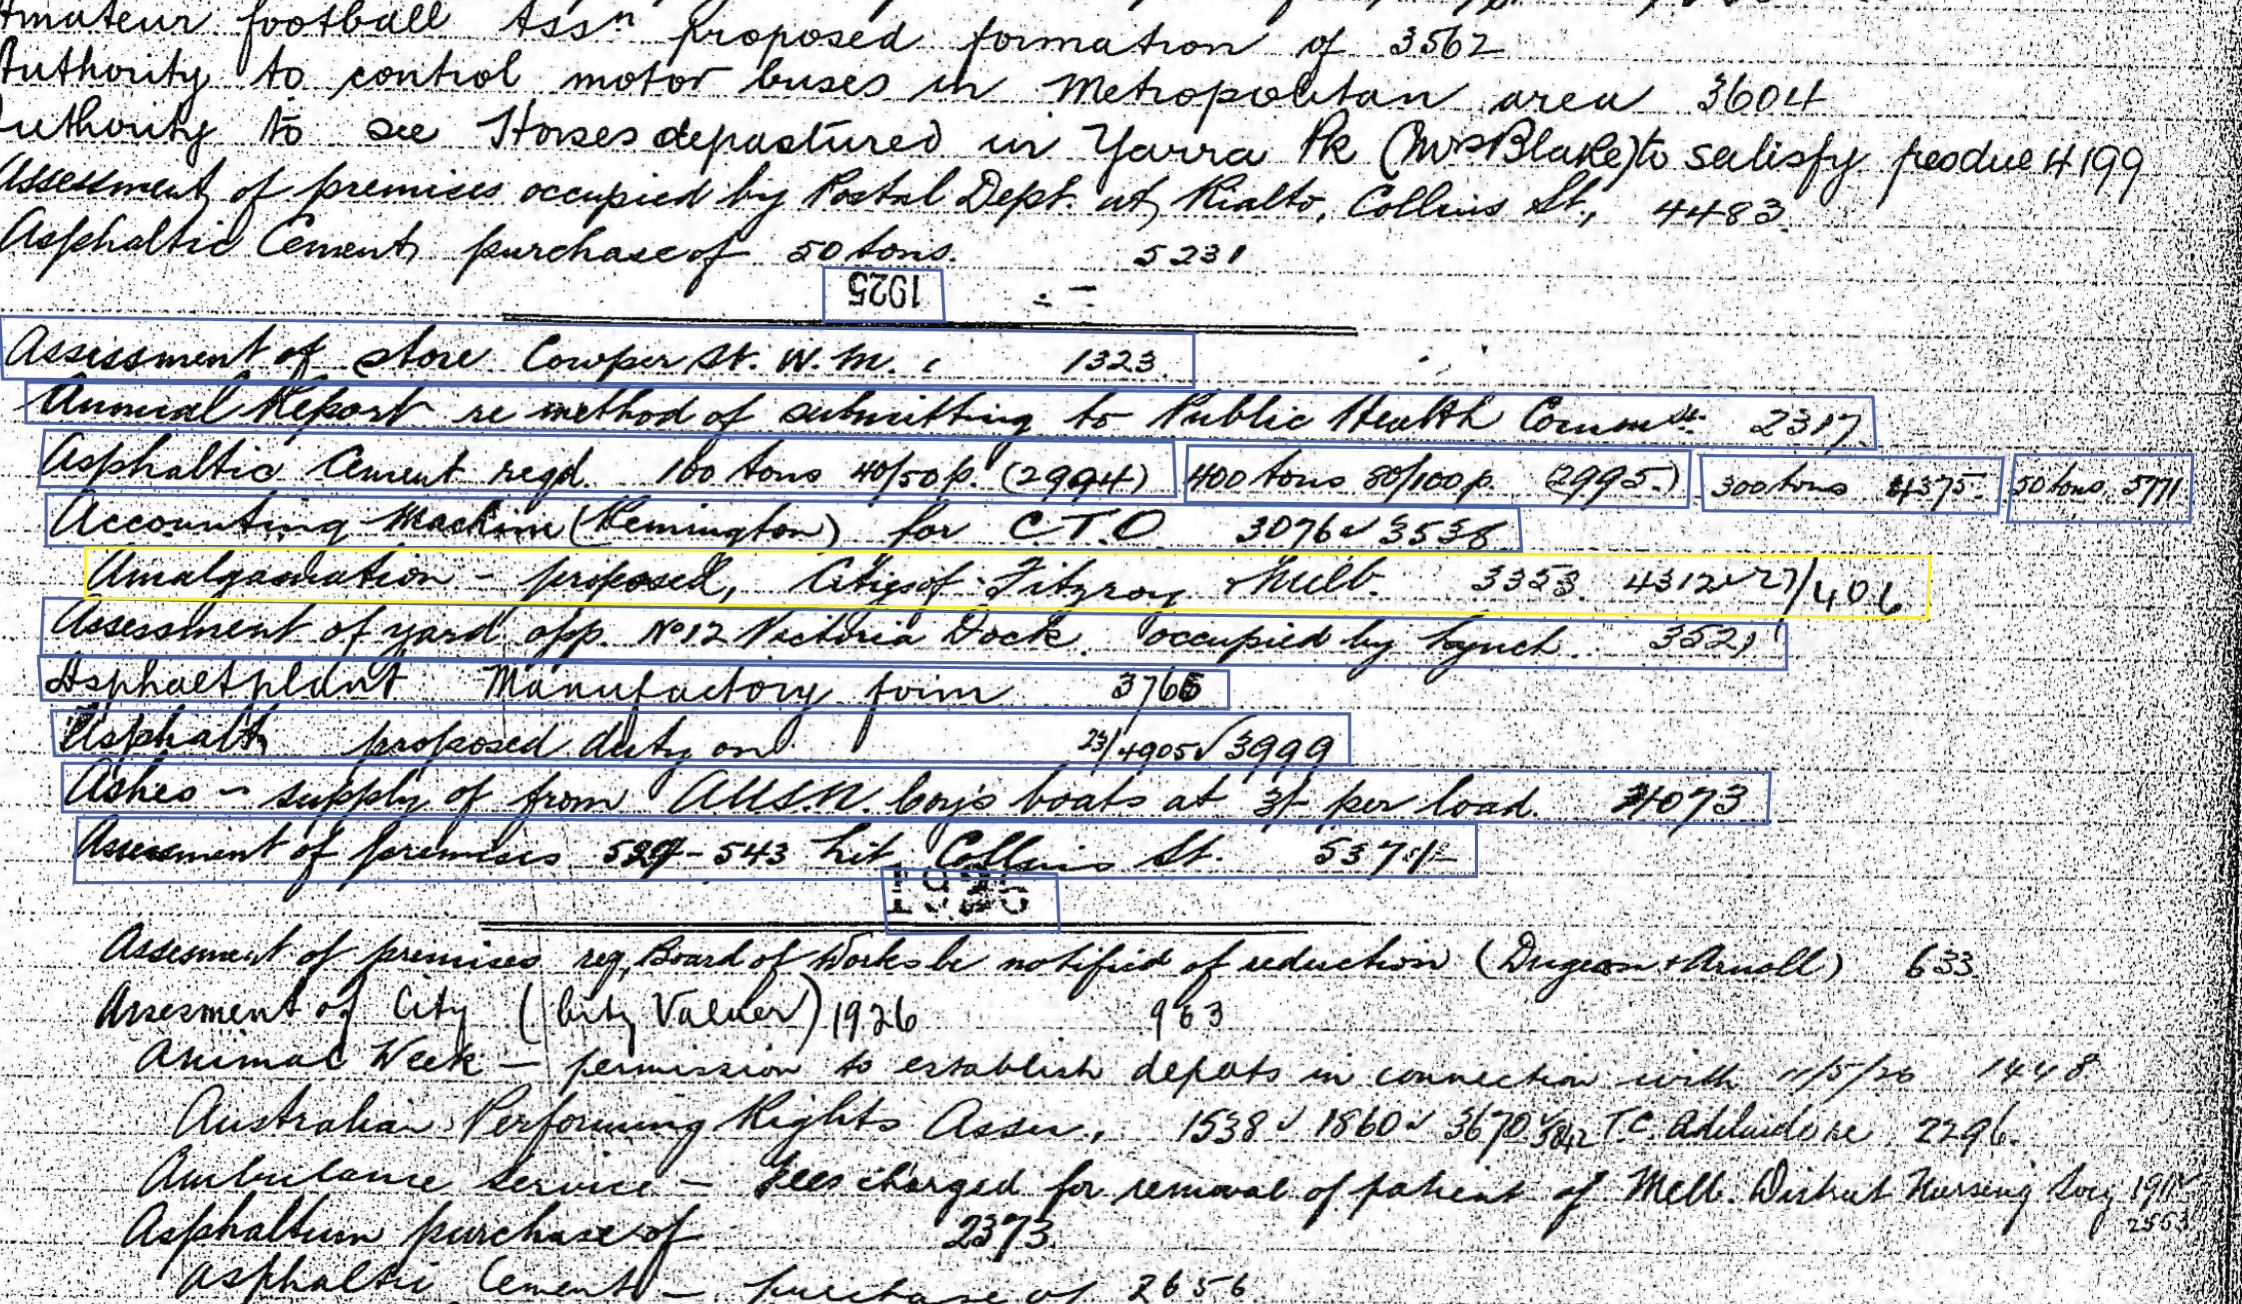 Amateur football Assn proposed formation of 3562
Authority to control motor buses in Metropolitan area 3604
Authority to see Horses depastured in Yarra Pk (Mrs Blake) to satisfy 4199
Assessment of premises occupied by Postal Dept. at Rialto, Collins St., 4483
Asphaltic Cement purchase of 50 tons. 5231
1925
Assessment of store Cowper St. W. M. 1323
Annual Report re method of submitting to Public Health Commn 2317
Asphaltic Cement reqd. 100 tons 40/50 p. (2994) 400 tons 80/100 p. (2995.) 300 tons 4375. 50 tons 5771
Accounting Machine (Remington) for C.T.O 3076 ✓ 3538
Amalgamation - proposed, Citys of Fitzroy + Melb. 3353 4312 ✓ 27/406
Assessment of yard opp. No 12 Victoria Dock. occupied by Lynch. 3521
Asphalt plant Manufactory 3765
Asphalt proposed duty on 23/4905 ✓ 3999
Ashes - supply of from A.U.S.N. Coy's boats at 3/- per load. 4073
Assessment of premises 543 Lit. Collins St. 5371
1926
Assesment of premises req. Board of Works be notified of reduction ( + Arnall) 633
Assesment of City (City Valuer) 1926 963
Animal Week - permission to establish depots in connection with 11/5/26 1448
Australian Performing Rights Assn., 1538 ✓ 1860 ✓ 3670 T.C. Adelaide re 2296.
Ambulance service - Fees charged for removal of patient of Melb. District Nursing Socy 1911 ✓
2553
Asphaltum purchase of 2373
Asphaltic Cement - purchase of 2656